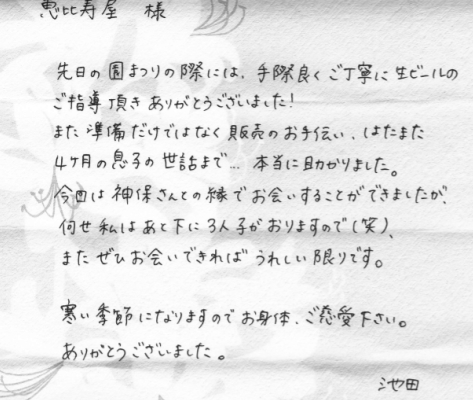 恵比寿屋 様
先日の園まつりの際には、手際良くご丁寧に生ビールの
ご指導頂きありがとうございました!
また準備だけではなく販売のお手伝い、はたまた
4ヶ月の息子の世話まで… 本当に助かりました。
今回は神保さんとの縁でお会いすることができましたが、
何せ私はあと下に3人子がおりますので(笑)、
またぜひお会いできればうれしい限りです。
寒い季節になりますのでお身体、ご慈愛下さい。
ありがとうございました。
池田